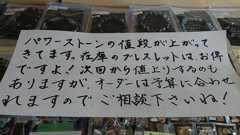 パワーストーンの値段が上がって
きてます。在庫のブレスレットは、お得
ですよ！次回から値上りするのも
ありますが、オーダーは予算に合わせ
れますのでご相談下さいね！